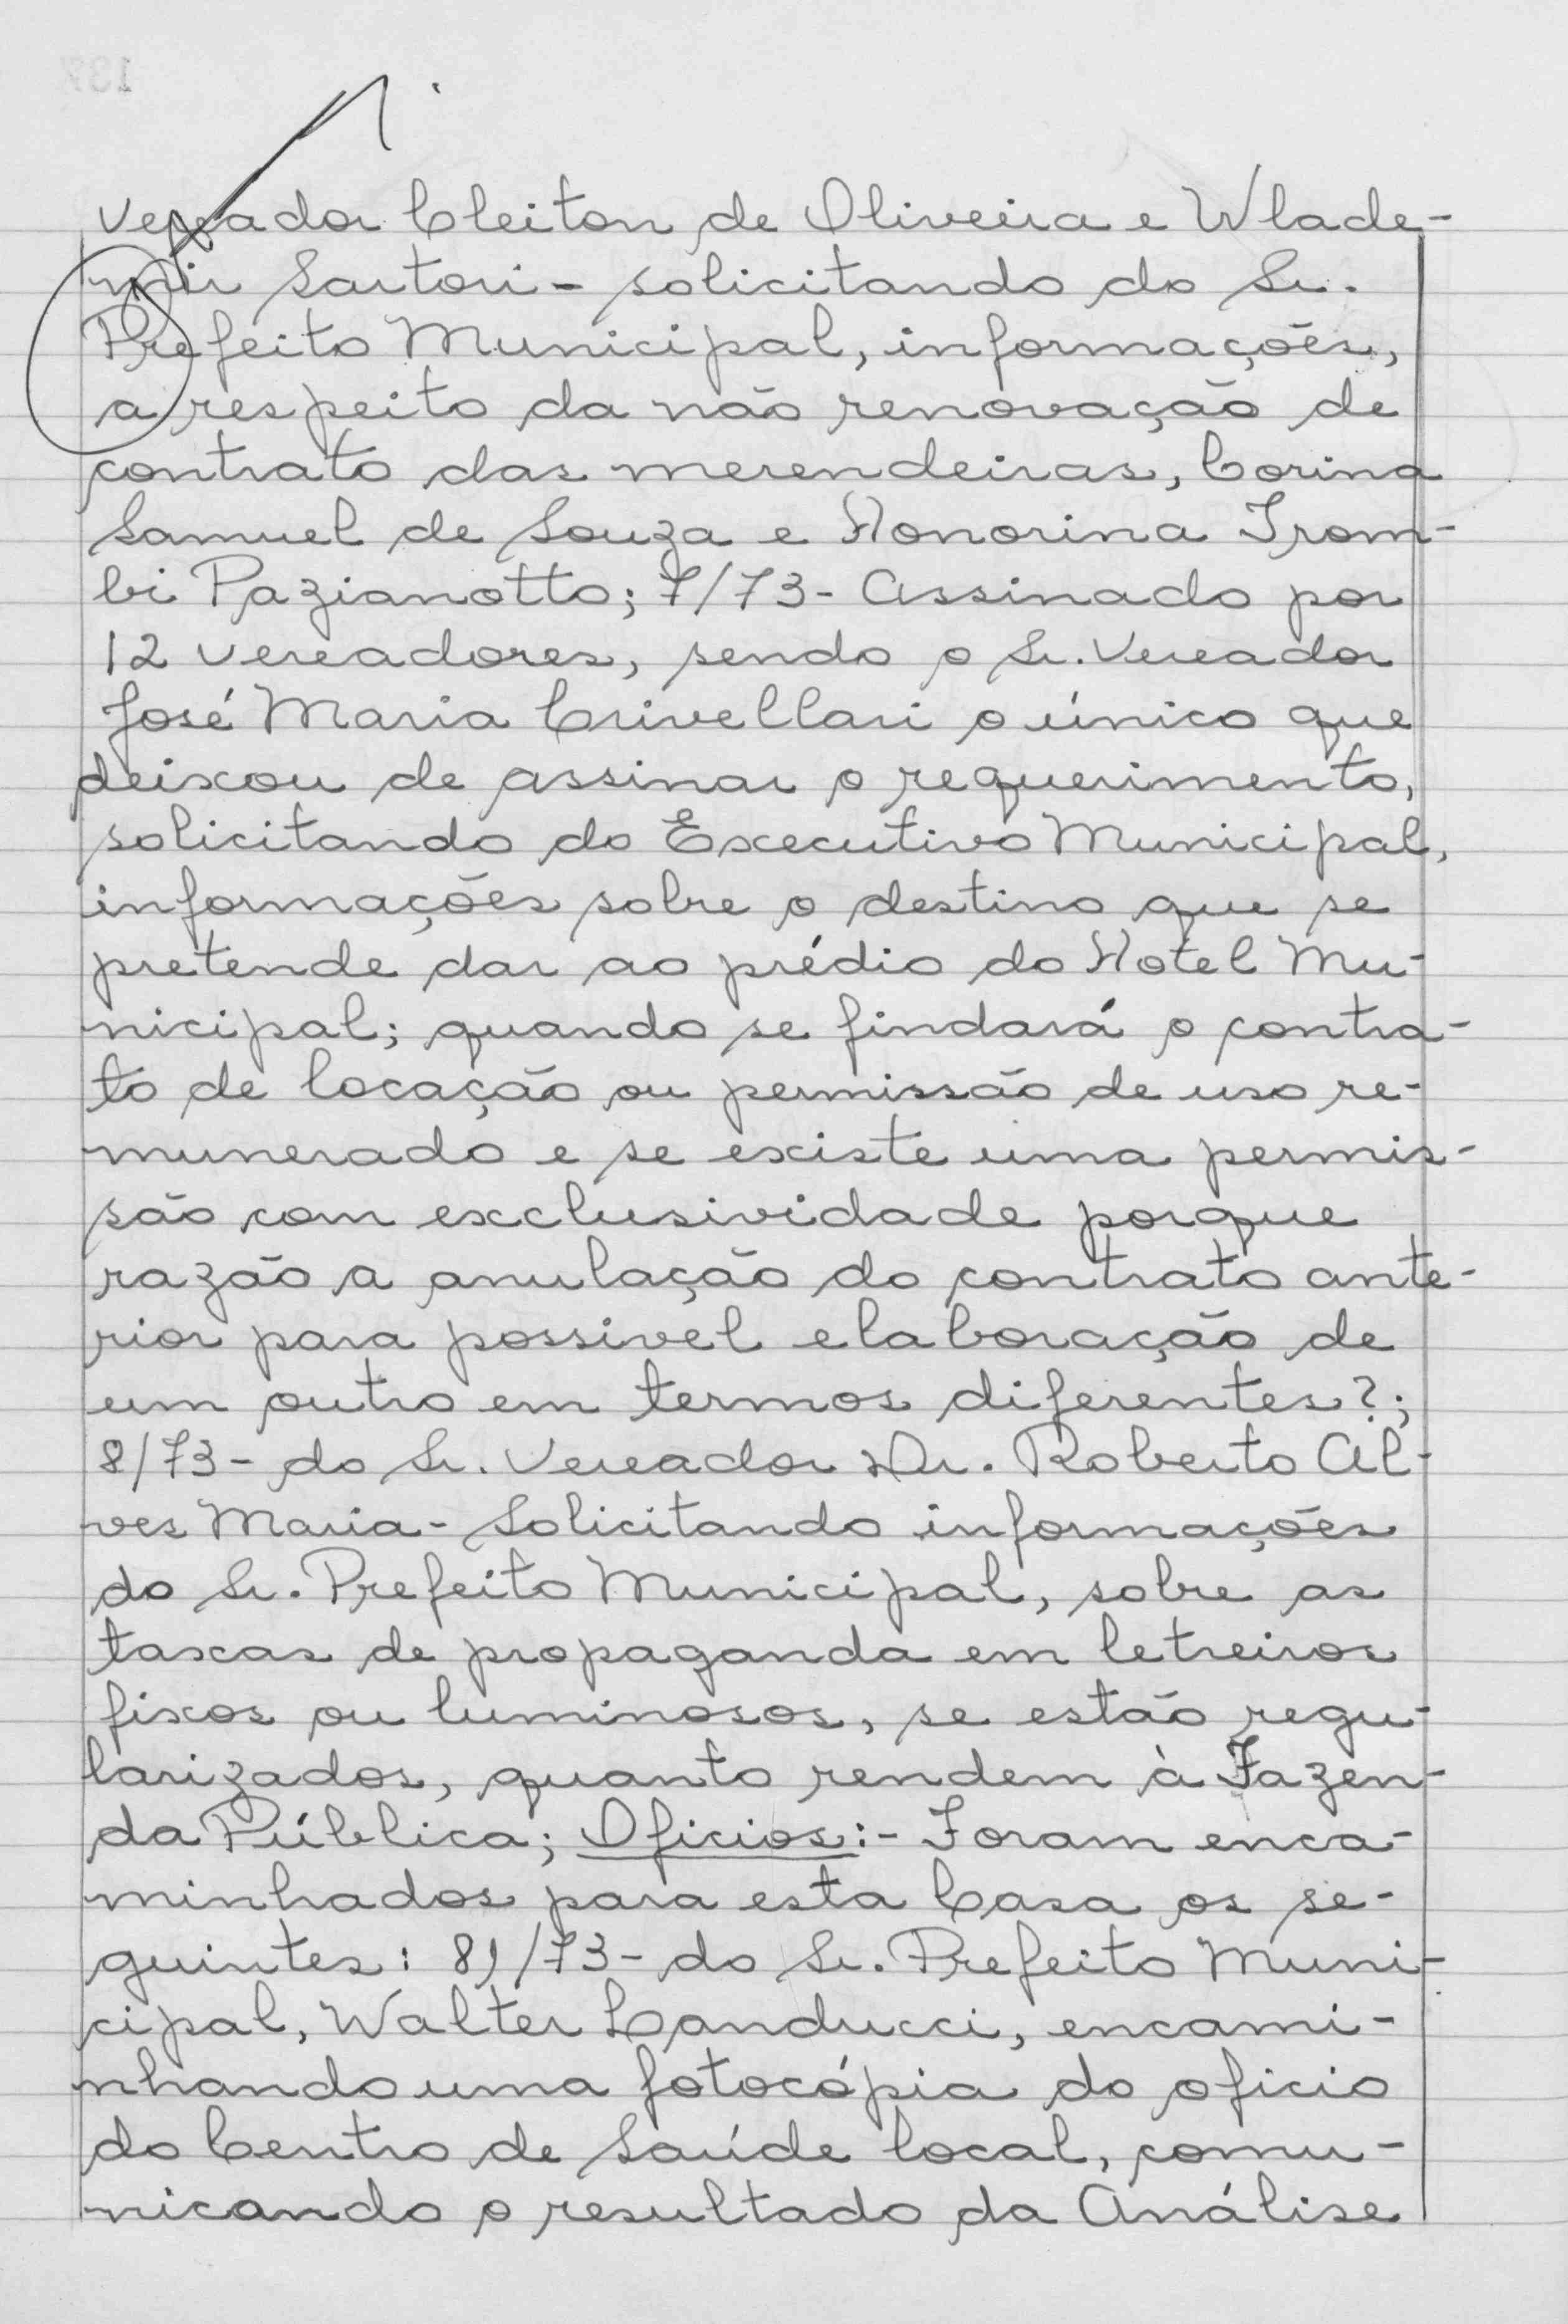 vereador Cleiton de Oliveira e Wlade-
mir Sartori - solicitando do Sr.
Prefeito Municipal, informações,
a respeito da não renovação de
contrato das merendeiras, Corina
Samuel de Souza e Honorina Trom-
bi Pazianotto; 7/73 - Assinado por
12 vereadores, sendo o Sr. Vereador
José Maria Crivellari o único que
deixou de assinar o requerimento,
solicitando do Executivo Municipal,
informações sobre o destino que se
pretende dar ao prédio do Hotel Mu-
nicipal; quando se findará o contra-
to de locação ou permissão de uso re-
munerado e se existe uma permis-
são com exclusividade porque
razão a anulação do contrato ante-
rior para possivel elaboração de
um outro em termos diferentes?;
8/73 - do Sr. Vereador Dr. Roberto Al-
ves Maria - Solicitando informações
do Sr. Prefeito Municipal, sobre as
taxas de propaganda em letreiros
fixos ou luminosos, se estão regu-
larizados, quanto rendem à Fazen-
da Pública; Oficios:- Foram enca-
minhados para esta Casa os se-
guintes: 81/73 - do Sr. Prefeito Muni-
cipal, Walter Canducci, encami-
nhando uma fotocópia do oficio
do Centro de Saúde local, comu-
nicando o resultado da Análise